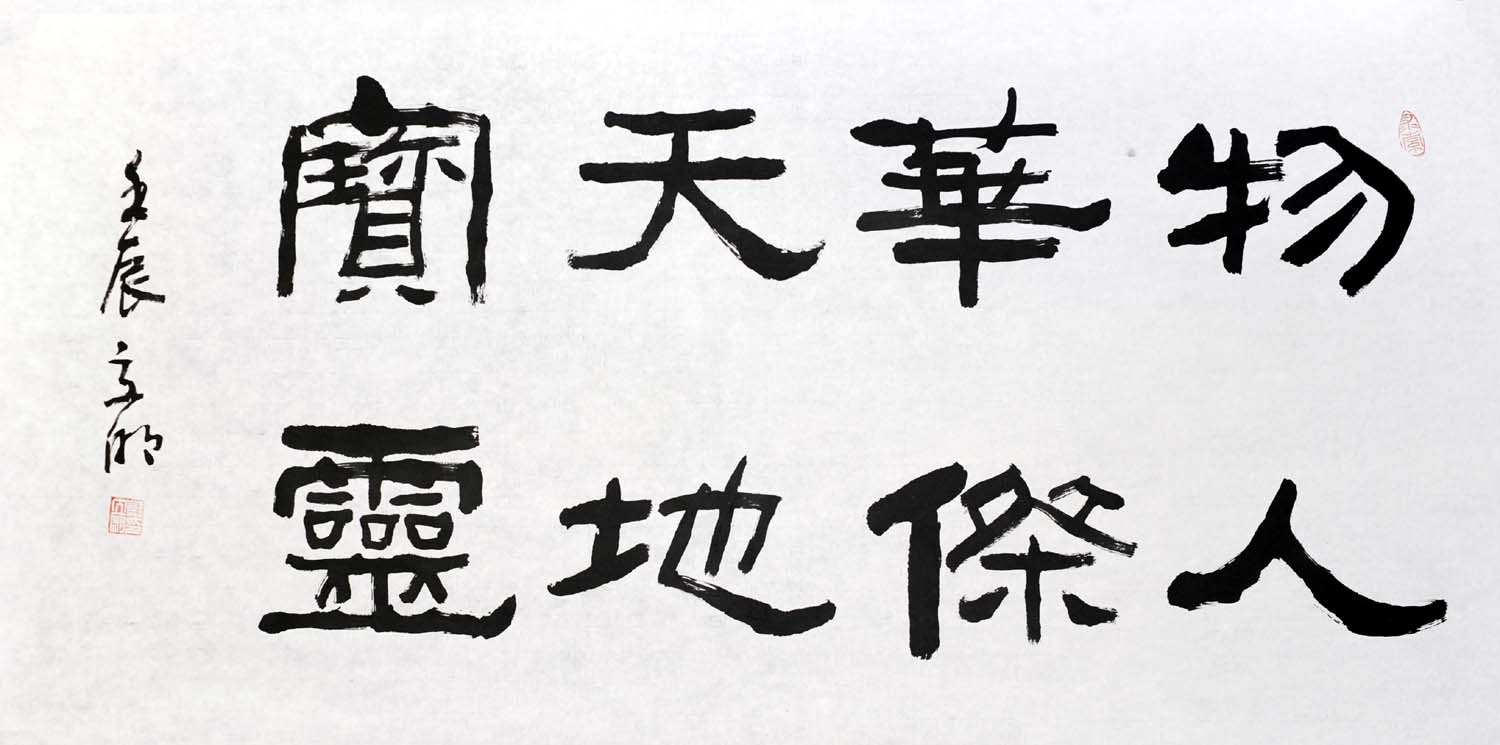 物華天寶
人傑地靈
壬辰